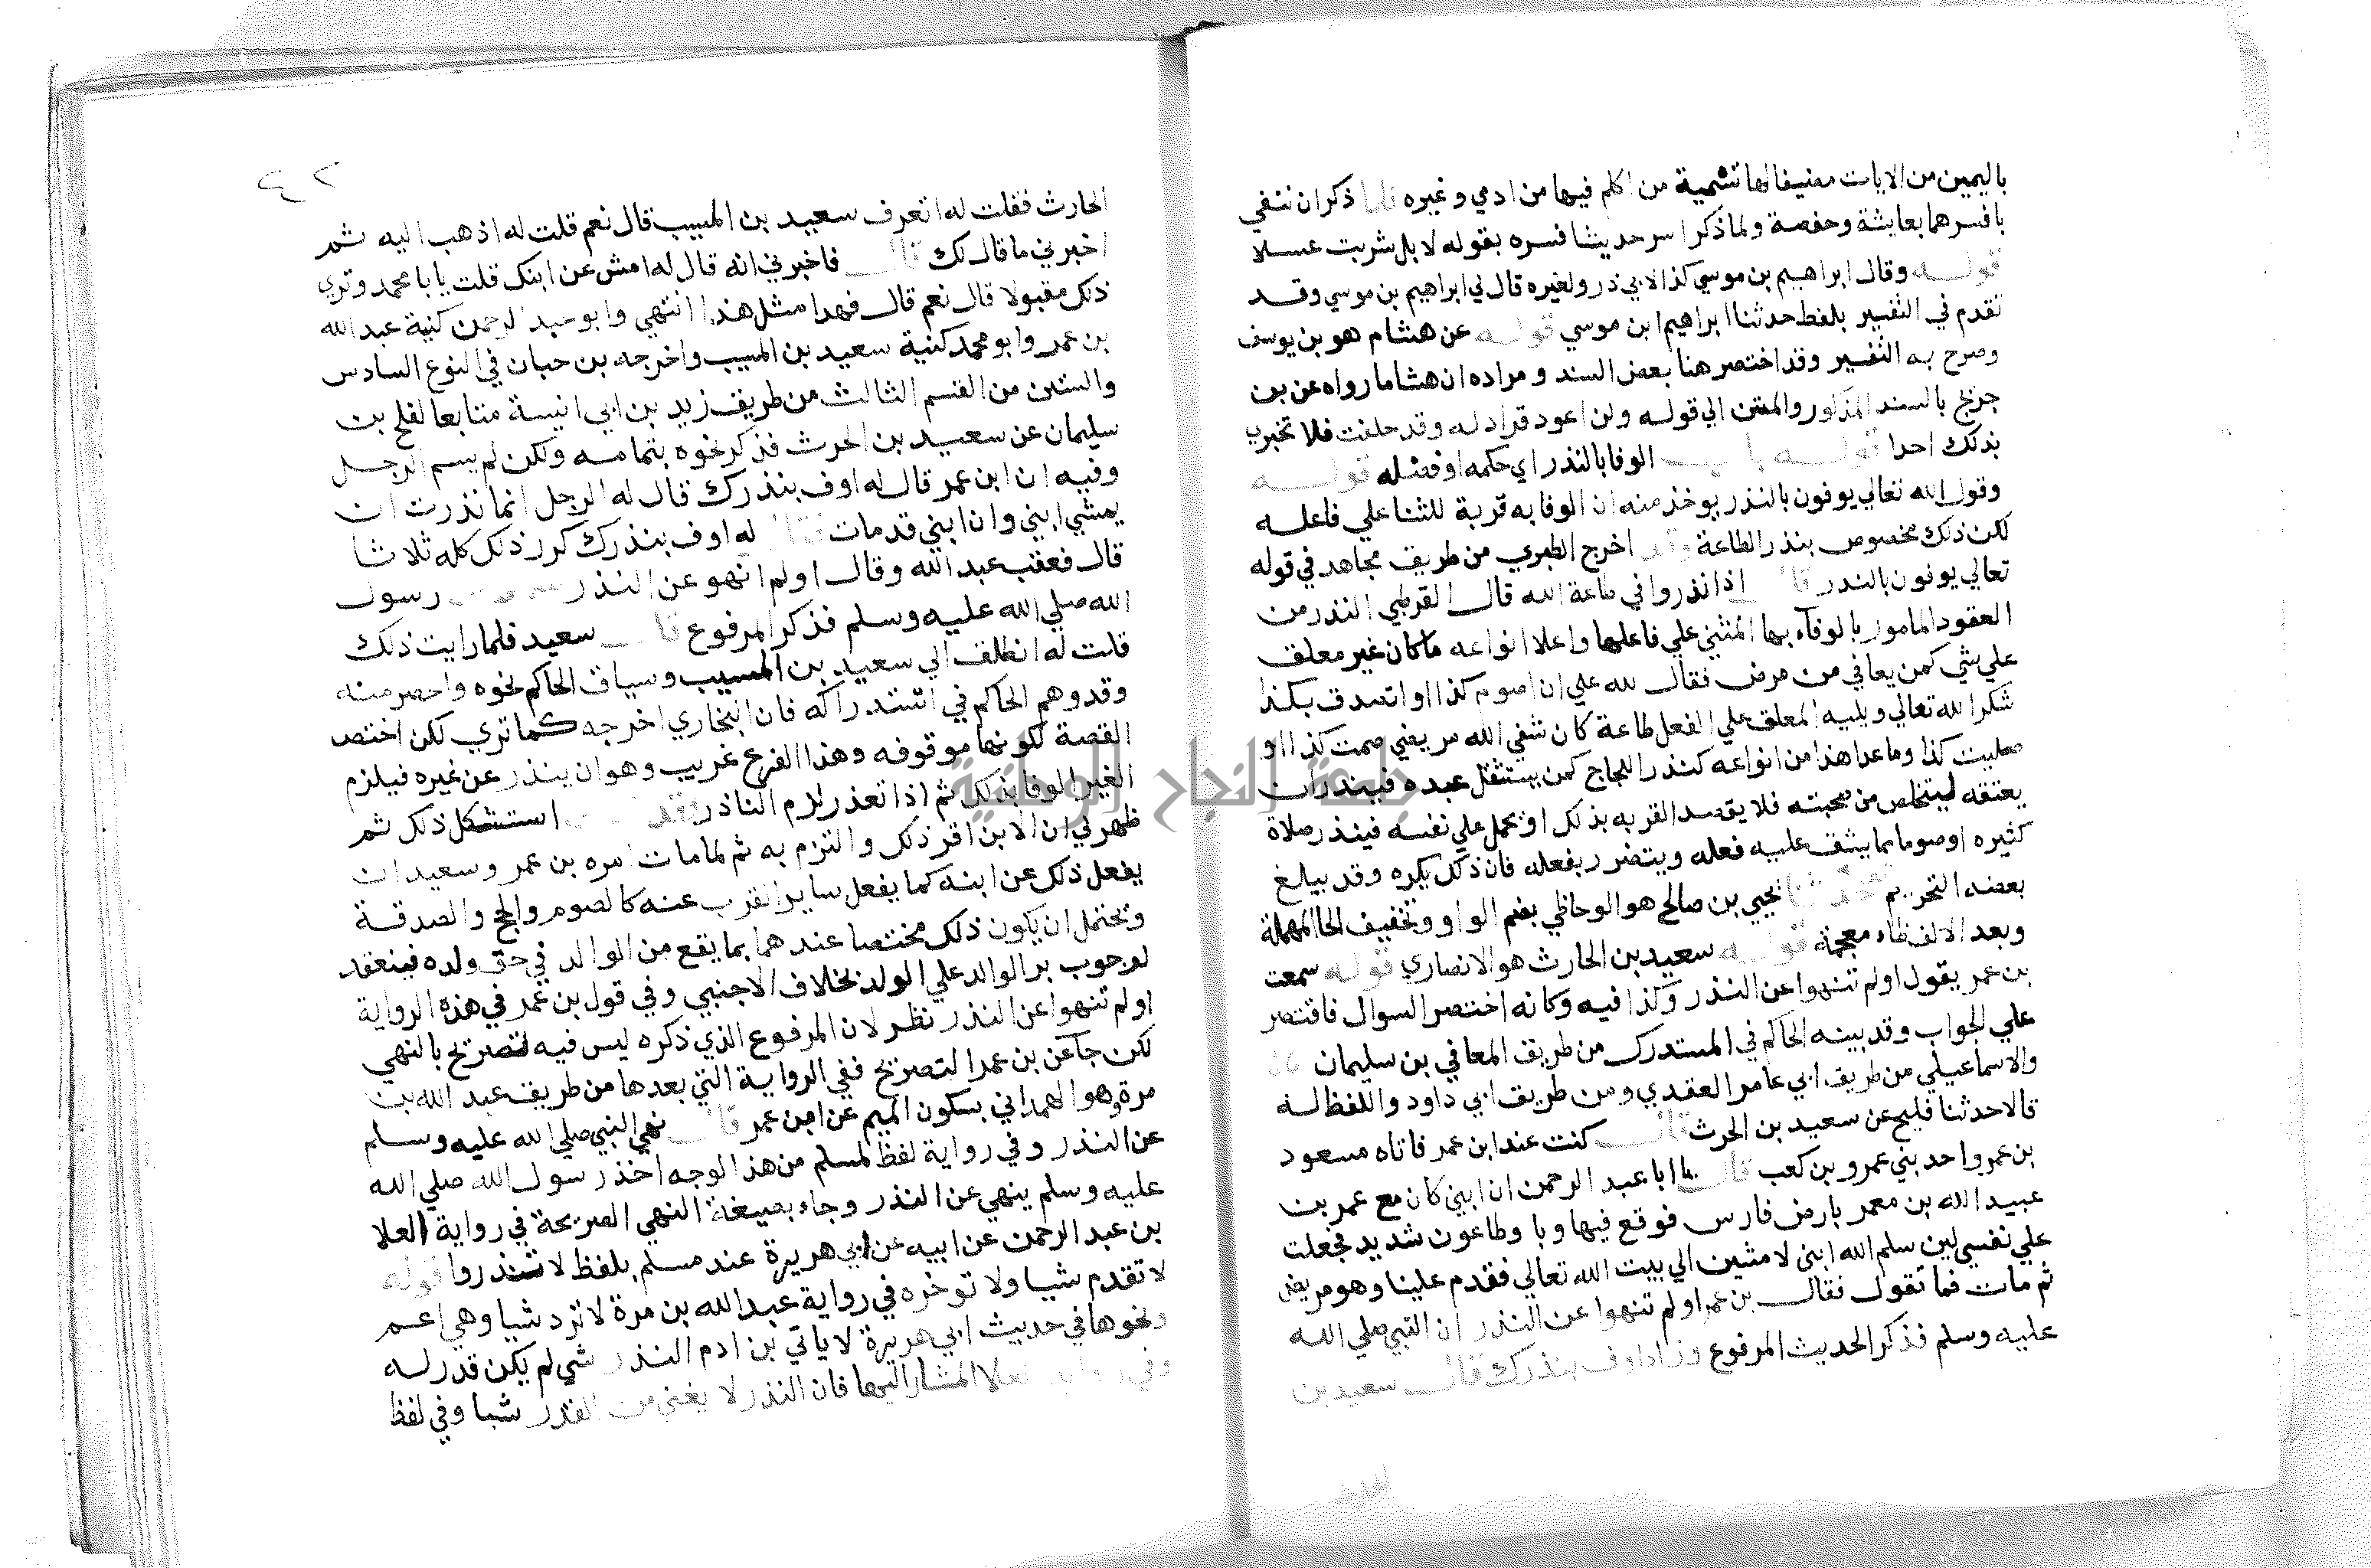 باليمين من الايات مضيفا لها تسمية من ابهم فيها من ادمي وغيره فلما ذكر ان تتفي
با فسرهما بعايشة وحفصة ولما ذكر اسر حديثا فسره بقوله لا بل شربت عسلا
قوله وقال ابراهيم بن موسي كذا لابي ذر ولغيره قال لي ابراهيم بن موسي وقد
تقدم في التفسير بلفظ حدثنا ابراهيم ابن موسي قوله عن هشام هو بن يوسف
وصرح به التفسير وقد اختصر هنا بعض السند ومراده ان هشاما رواه عن بن
جريج بالسند المذكور والمتن الي قوله ولن اعود قزاد له وقد حلفت فلا تخبري
بذلك احدا قوله باب الوفا بالنذر اي حكمه او فضله قوله
وقول الله تعالي يوفون بالنذر يوخذ منه ان الوفا به قربة للثنا علي فاعله
لكن ذلك مخصوص بنذر الطاعة وقد اخرج الطبري من طريق مجاهد في قوله
تعالي يوفون بالنذر قال اذا نذروا في طاعة الله قال القرطبي النذر من
العقود المامور بالوفاء بها المثني علي فاعلها واعلا انواعه ما كان غير معلق
علي شي كمن يعافي من مرض فقال لله علي ان اصوم كذا او اتصدق بكذا
شكرا لله تعالي ويليه المعلق علي الفعل طاعة كان شفي الله مريضي صمت كذا او
صليت كذا وما عدا هذا من انواعه كنذر اللجاج كمن يستثقل عبده فينذر ان
يعتقه ليتخلص من صحبته فلا يقصد القربه بذلك او يحمل علي نفسه فينذر صلاة
كثيره او صوما مما يشق عليه فعله ويتضرر بفعله فان ذلك يكره وقد يبلغ
بعضه التحريم حدثنا يحيي بن صالح هو الوحاظي بضم الواو وتخفيف الحا المهملة
وبعد الالف ظاء معجمة قوله سعيد بن الحارث هو الانصاري قوله سمعت
بن عمر يقول اولم تنهوا عن النذر وكذا فيه وكانه اختصر السوال فاقتصر
علي الجواب وقد بينه الحاكم في المستدرك من طريق المعافي بن سليمان
والاسماعيلي من طريق ابي عامر العقدي ومن طريق ابي داود واللفظ له
قالا حدثنا فليح عن سعيد بن الحرث قال كنت عند ابن عمر فاتاه مسعود
بن عمرو احد بني عمرو بن كعب قال يا ابا عبد الرحمن ان ابني كان مع عمر بن
عبيد الله بن معمر بارض فارس فوقع فيها وبا وطاعون شديد فجعلت
علي نفسي لين سلم الله ابني لامشين الي بيت الله تعالي فقدم علينا وهو مريض
ثم مات فما تقول فقال بن عمر اولم تنهوا عن النذر ان النبي صلي الله
عليه وسلم فذكر الحديث المرفوع وزاد اوف بنذرك قال سعيد بن
الحارث فقلت له اتعرف سعيد بن المسيب قال نعم قلت له اذهب اليه ثم
اخبرني ما قال لك قال فاخبرني انه قال له امش عن ابنك قلت يابا محمد وتري
ذلك مقبولا قال نعم قال فهذا مثل هذا انتهي وابو عبد الرحمن كنية عبد الله
بن عمر وابو محمد كنية سعيد بن المسيب واخرجه بن حبان في النوع السادس
والستين من القسم الثالث من طريق زيد بن ابي انيسة متابعا لفلح بن
سليمان عن سعيد بن الحرث فذكر نحوه بتمامه ولكن لم يسم الرجل
وفيه ان ابن عمر قال له اوف بنذرك قال له الرجل انما نذرت ان
يمشي ابني وان ابني قد مات فقال له اوف بنذرك كرر ذلك كله ثلاثا
قال فغضب عبد الله وقال اولم تنهو عن النذر رسول
الله صلي الله عليه وسلم فذكر المرفوع قال سعيد فلما رايت ذلك
قلت له انطلق الي سعيد بن المسيب وسياق الحاكم نحوه واخصر منه
وقد وهم الحاكم في استدراكه فان البخاري اخرجه كما تري لكن اختصر
القصة لكونها موقوفه وهذا الفرع غريب وهو ان ينذر عن غيره فيلزم
الغير الوفا بذلك ثم اذا تعذر لزم الناذر وقد استشكل ذلك ثم
ظهر لي ان الابن اقر ذلك والتزم به ثم لما مات امره بن عمر وسعيد ان
يفعل ذلك عن ابنه كما يفعل ساير القرب عنه كالصوم والحج والصدقة
ويحتمل ان يكون ذلك مختصا عندهما بما يقع من الوالد في حق ولده فينعقد
لوجوب بر الوالد علي الولد بخلاف الاجنبي وفي قول بن عمر في هذه الرواية
اولم تنهوا عن النذر نظر لان المرفوع الذي ذكره ليس فيه تصريح بالنهي
لكن جا عن بن عمر التصريح ففي الرواية التي بعدها من طريق عبد الله بن
مرة وهو الهمداني بسكون الميم عن ابن عمر قال نهي النبي صلي الله عليه وسلم
عن النذر وفي رواية لفظ لمسلم من هذا الوجه اخذ رسول الله صلي الله
عليه وسلم ينهي عن النذر وجاء بصيغة النهي الصريحة في رواية العلا
بن عبد الرحمن عن ابيه عن ابي هريرة عند مسلم بلفظ لا تنذروا قوله
لا تقدم شيا ولا توخره في رواية عبد الله بن مرة لا ترد شيا وهي اعم
ونحوها في حديث ابي هريرة لا ياتي بن ادم النذر شي لم يكن قدر له
وفي رواية العلا المشار اليها فان النذر لا يغني من القدر شيا وفي لفظ